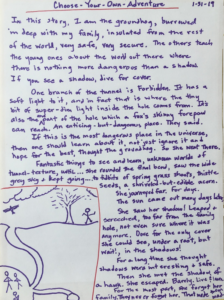 Choose-Your-Own-Adventure 1-31-19
In this story, I am the groundhog, burrowed
in deep with my family, insulated from the rest
of the world, very safe, very secure. The others teach
the young ones about the world out there where
there is nothing more dangerous than a shadow.
If you see a shadow, dive for cover.
One branch of the tunnel is forbidden. It has a
soft light to it, and in fact that is where the tiny
bit of super-dim light inside the hole comes from. It's
also the point of the hole which a fox's skinny forepaw
can reach. An enticing but dangerous place. They said.
If this is the most dangerous place in the universe,
then one should learn about it, not just ignore it and
hope for the best, thought the groundhog. So she went there.
Fantastic things to see and learn, unknown worlds of
tunnel, texture, walls... she rounded the final bend, saw the wide
grey sky & kept going... to tables of spring grass shoots, thistle
seeds, a shrivelled-but-edible acorn.
She yearned for deep
The sun came out many days later
She saw her shadow! Leaped &
screeched, too far from the den
hole, not even sure where it was
anymore. Dove for the only cover
she could see, under a root, but
wait, in the shadows!
For a long time she thought
shadows were but essentially safe.
Then she met the shadow of
a hawk. She escaped. Slowly, lived
for the most part, she forgot
family. They never forgot her. That